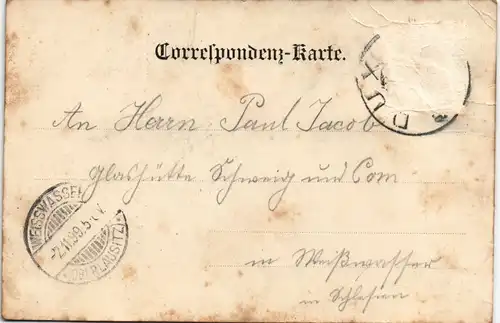 Correspondenz-Karte.
DUX
An Herrn Paul Jacob
Glashütte Schweig und Com
WEISSWASSER
-2.11.99.5-6.V.
(OBERLAUSITZ)
in Weißwasser
in Schlesien